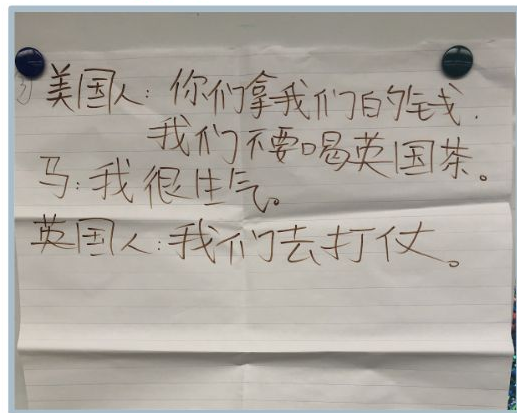 美国人：你们拿我们的钱.
我们不要喝英国茶。
马：我很生气。
英国人：我们去打仗。